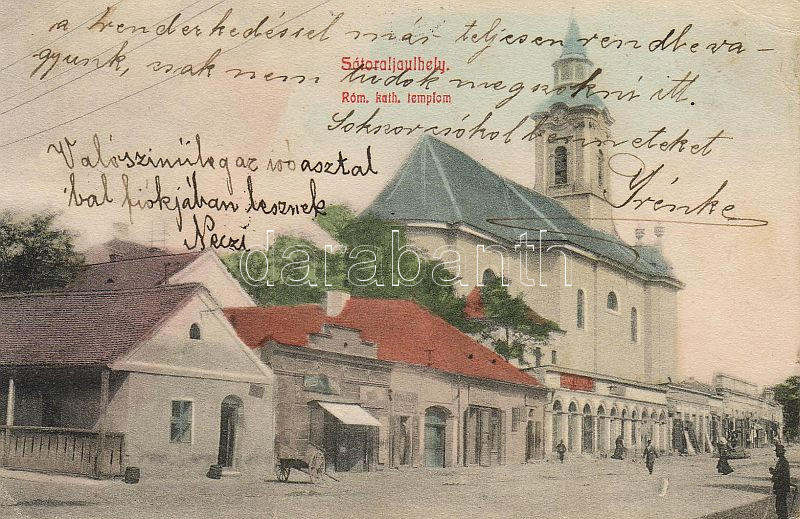 a berenderkedéssel már teljesen rendbe va-
gyunk, csak nem tudok megszokni itt.
Sátoraljaujhely.
Róm. kath. templom
Sokszor csókol benneteket
Irénke
Valószinüleg az iróasztal
bal fiókjában lesznek
Neczi
darabanth